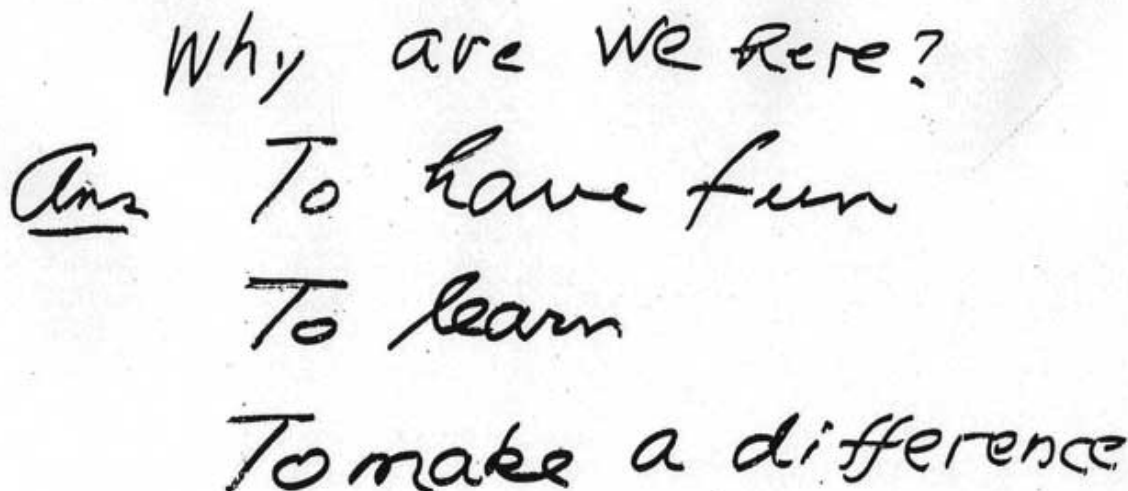 Why are we here?
Ans To have fun
To learn
To make a difference